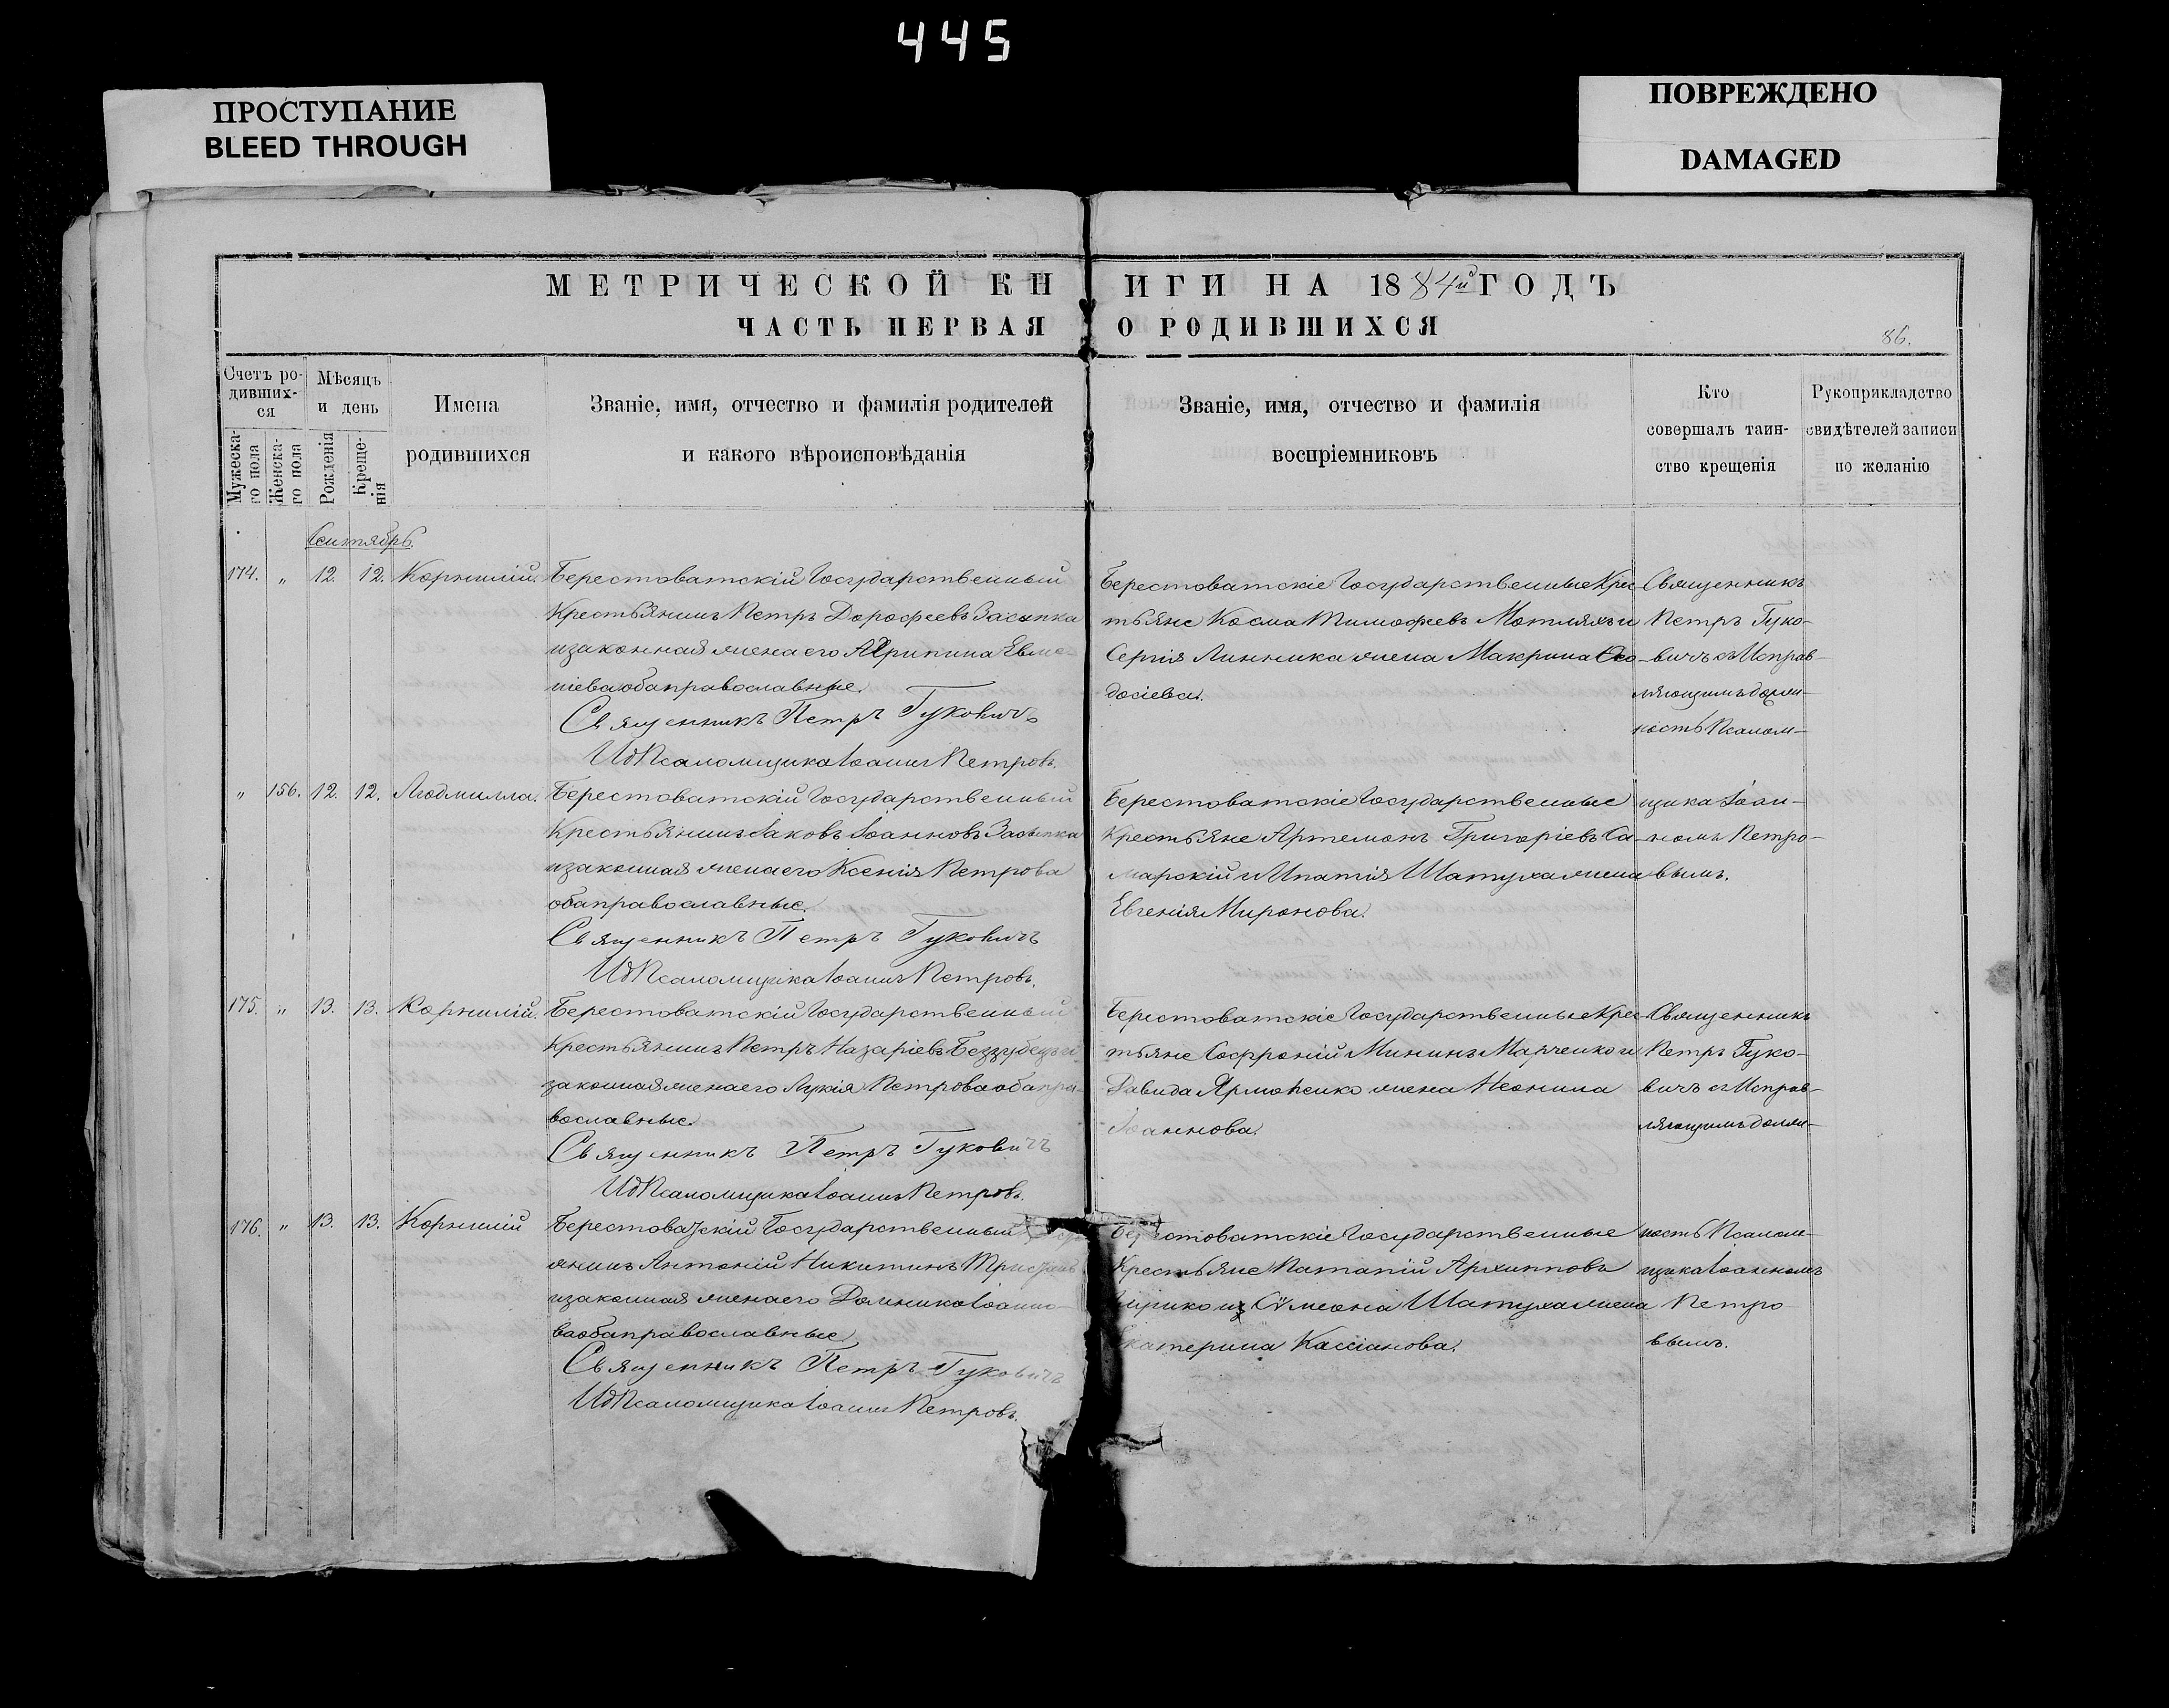 445
ПРОСТУПАНИЕ
BLEED THROUGH
ПОВРЕЖДЕНО
DAMAGED
МЕТРИЧЕСКОЙ КНИГИ НА 1884й ГОДЪ
ЧАСТЬ ПЕРВАЯ О РОДИВШИХСЯ
86.
Счетъ ро-
дивших-
ся
Мужеска-
го пола
Женска-
го пола
Мѣсяцъ
и день
Рожденія
Креще-
нія
Имена
родившихся
Званіе, имя, отчество и фамилія родителей
и какого вѣроисповѣданія
Званіе, имя, отчество и фамилія
воспріемниковъ
Кто
совершалъ таин-
ство крещенія
Рукоприкладство
свидѣтелей записи
по желанію
Сентябрь.
174. " 12. 12. Корнилій.
Берестоватскій Государственный
Крестьянинъ Петръ Дорофеевъ Засыпка
и законная жена его Агрипина Евме-
ніева оба православные.
Священникъ Петръ Гуковичъ
ИдПсаломщика Іоаннъ Петровъ.
Берестоватскіе Государственные Крес-
тьяне Косма Тимофеевъ Мотляхъ и
Сергія Линника жена Макрина Ѳео-
досіева.
Священникъ
Петръ Гуко-
вичъ съ Исправ-
ляющимъ долж-
ность Псалом-
" 156. 12. 12. Людмилла.
Берестоватскій Государственный
Крестьянинъ Іаковъ Іоанновъ Засыпка
и законная жена его Ксенія Петрова
оба православные.
Священникъ Петръ Гуковичъ
ИдПсаломщика Іоаннъ Петровъ.
Берестоватскіе Государственные
Крестьяне Артемонъ Григоріевъ Са-
марскій и Ипатія Шатуха жена
Евгенія Миронова.
щика Іоан-
номъ Петро-
вымъ.
175. " 13. 13. Корнилій.
Берестоватскій Государственный
Крестьянинъ Петръ Назаріевъ Беззубецъ и
законная жена его Лукія Петрова оба пра-
вославные.
Священникъ Петръ Гуковичъ
ИдПсаломщика Іоаннъ Петровъ.
Берестоватскіе Государственные Крес-
тьяне Софроній Мининъ Марченко и
Давида Ярмоненко жена Неонила
Іоаннова.
Священникъ
Петръ Гуко-
вичъ съ Исправ-
ляющимъ долж-
176. " 13. 13. Корнилій
Берестоватскій Государственный
янинъ Антоній Никитинъ
и законная жена его Домника Іоанно-
ва оба православные.
Священникъ Петръ Гуковичъ
ИдПсаломщика Іоаннъ Петровъ.
Берестоватскіе Государственные
Крестьяне Патапій Архиповъ
Сѵмеона Шатуха жена
Екатерина Кассіанова.
ность Псалом-
щика Іоанномъ
Петро
вымъ.